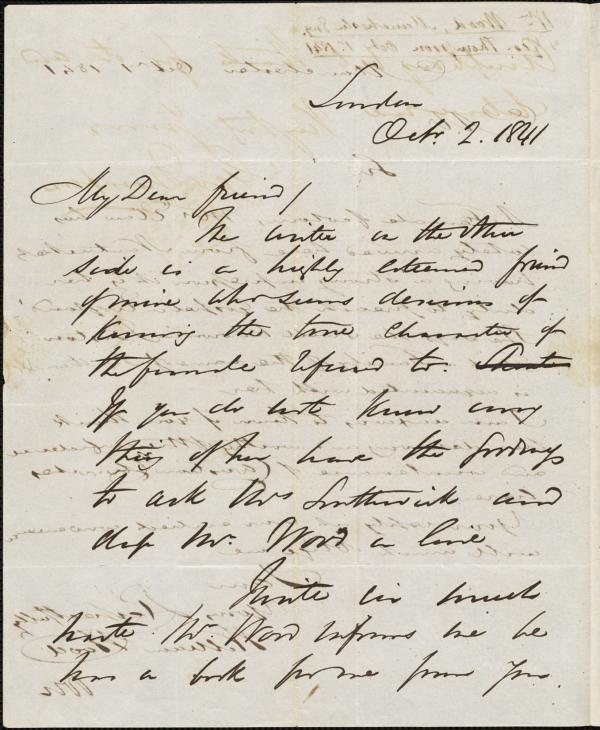 Wm Wood, Manchester Eng.
& Geo. Thompson Oct. 1. 1841
Manchester Oct 1 1841
London
Octr. 2. 1841
My Dear friend/
The writer on the other
side is a highly esteemed friend
of mine who seems desirous of
knowing the true character of
the female refered to.
If you do not know any
thing of her have the goodness
to ask Mrs Southwick and
drop Mr. Wood a line
I write in much
haste Mr. Wood informs me he
has a book for me from you.